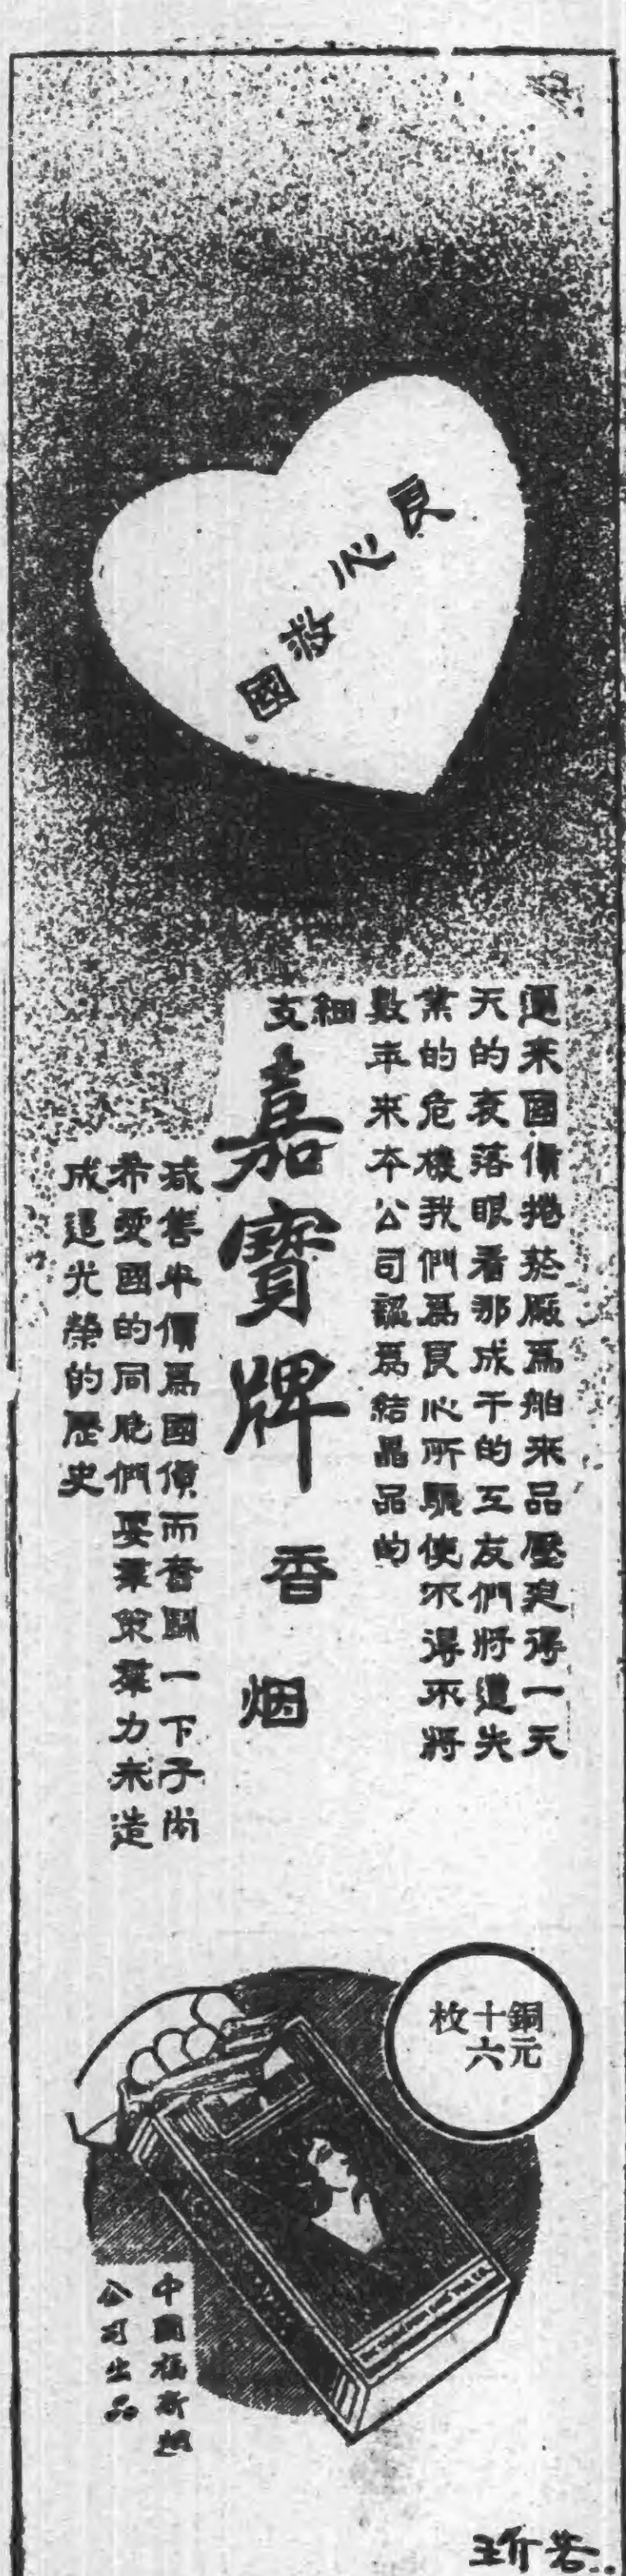 良心救國
邇來國貨捲菸厰爲舶來品壓迫得一天
天的衰落眼看那成千的工友們將遭失
業的危機我們爲良心所驅使不得不將
數年來本公司認爲結晶品的
細支
嘉寶牌
香烟
減售半價爲國貨而奮鬭一下子尚
希愛國的同胞們要羣策羣力來造
成這光榮的歷史
銅元
十六
枚
中國福新烟
公司出品